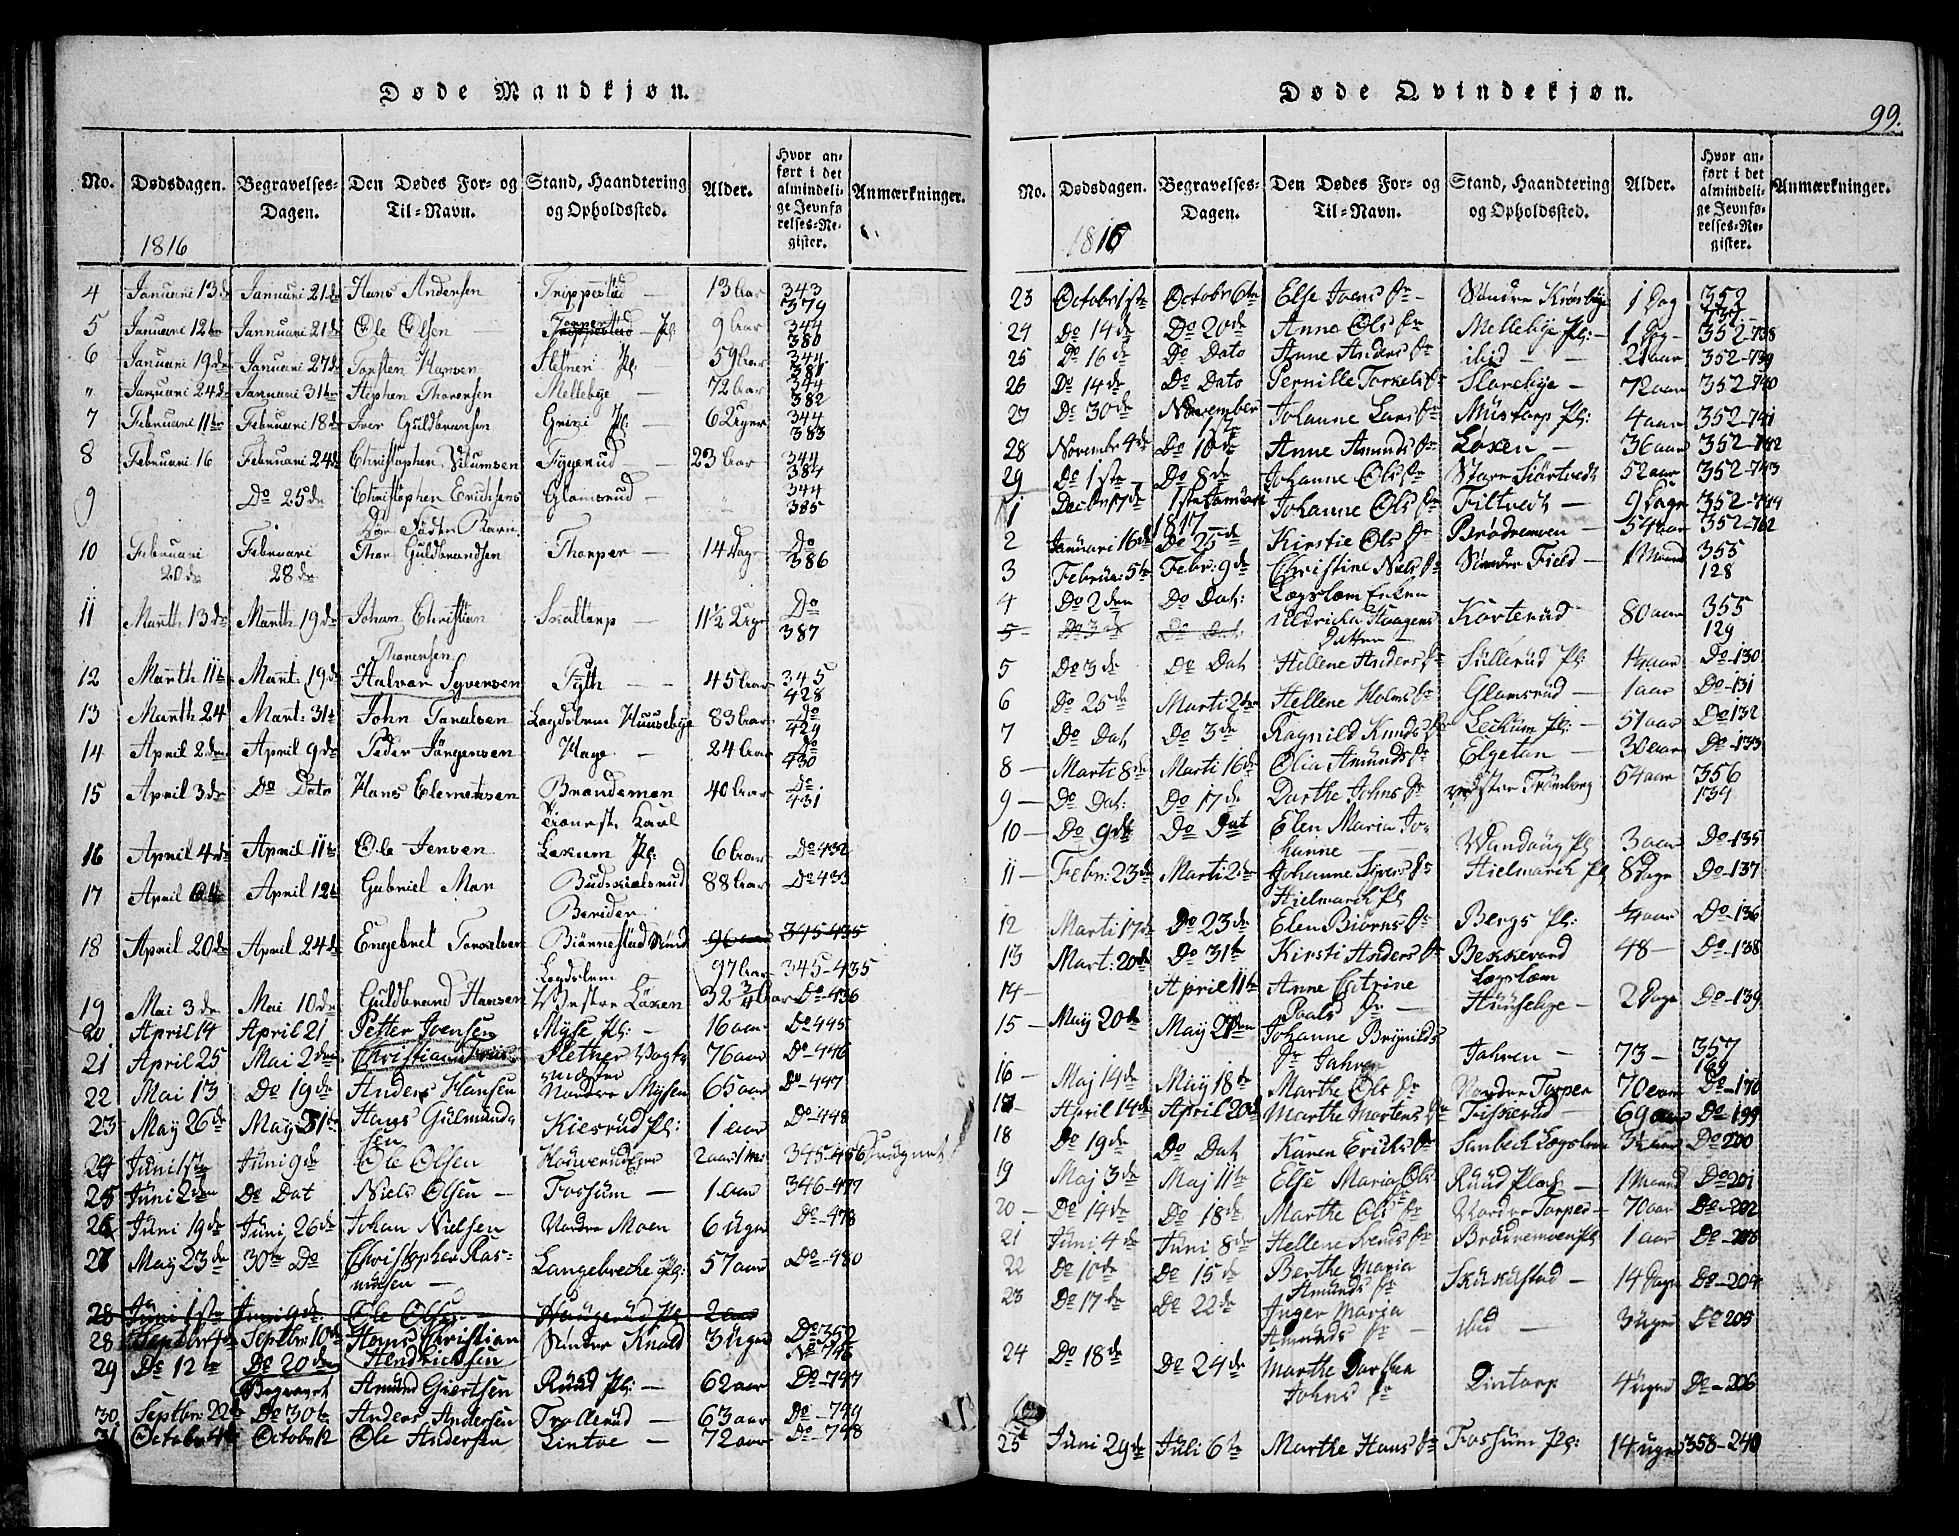 Døde Mandkjøn.
No. Dødsdagen. Begravelses-Dagen. Den Dødes For- og Til-Navn. Stand, Haandtering og Opholdssted. Alder. Hvor anført i det almindelige Jevnførelses-Register. Anmærkninger.
1816
4 Januari 13de Januari 21de Hans Andersen Trippestad 13 aar 343 379
5 Januari 12te Januari 21de Ole Olsen Pl: 9 aar 344 380
6 Januari 19de Januari 27de Torsten Hansen Sletner Pl: 59 aar 344 381
" Januari 24de Januari 31te Stephen Thoresen Mellebye 72 aar 344 382
7 Februari 11te Februari 18de Iver Guldbransen Grini Pl: 6 Uger 344 383
8 Februari 16 Februari 24de Christopher Nilumsen Tygerud 23 aar 344 384
9 Do 25de Christopher Erichsens Glamsrud 344 385
Død Født Barn
10 Februari 20de Februari 28de Thor Guldbrandsen Thorper 14 Dage Do 386
11 Marth 13de Marth 19de Johan Christian Thoresen Skaltorp 11½ Uger Do 387
12 Marth 11te Mart: 19de Halvor Syversen Tyth 45 aar 345 428
13 Marth 24 Mart: 31te John Toralsen Lægdslem Huusebye 83 aar Do 429
14 April 2den April 9de Peder Jørgensen Hage 24 aar Do 430
15 April 3de Do Dato Hans Clemetsen Brandemoen 40 aar Do 431
16 April 4de April 11te Ole Jensen Lekum Pl: 6 aar Do 432
17 April April 12te Gabriel Mon Budskialsrud 88 aar Do 433
18 April 20de April 24de Engebret Torvelsen Biønnestad Sund 96 aar 345-435
Lægdslem 97 aar 345-435
19 Mai 3de Mai 10de Guldbrand Hansen Vestre Løken 32 3/4 aar Do-436
20 April 14 April 21 Petter Joensen Myse Pl: 16 aar Do 445
21 April 25 Mai 2den Christian Sletner 76 aar Do-446
22 Mai 13 Do 19de Anders Hansen Nordre Mysen 65 aar Do-447
23 May 26de May 31te Hans Gulmundsen Kiesrud Pl: 1 aar Do-448
24 Juni 1ste Juni 9de Ole Olsen 2 aar 1 m: 345-456
25 Juni 2den Do Dat Niels Olsen Fossum 1 aar 346-477
26 Juni 19de Juni 26de Johan Nielsen Nordre Moen 6 Uger Do-478
27 May 23de 30te Do Christopher Rasmusen Langebreche Pl: 57 aar Do-480
28 Juni 1ste Juni 9de Ole Olsen Pl 2 aar
28 Septbr 4de Septbr: 10de Hans Christian Hendricksen Søndre Knold 3 Uger Do 352 No 746
29 Do 12te Do 20de Begravet Amund Giertsen Ruud Pl: 62 aar Do-747
30 Septbr: 22 Do 30te Anders Andersen Trollerud 63 aar Do-749
31 October Octobr 12 Ole Andersen Lintoe 72 aar Do-748
Døde Qvindekjøn.
99.
No. Dødsdagen. Begravelses-Dagen. Den Dødes For- og Til-Navn. Stand, Haandtering og Opholdssted. Alder. Hvor anført i det almindelige Jevnførelses-Register. Anmærkninger.
1816
23 Octobr 1ste Octobr 6te Else Joens Dr Søndre Krosbye 1 Dag 352 737
24 Do 14de Do 20de Anne Ols Dr Mellebye Pl: 1 Dag 352-738
25 Do 16de Do Dato Anne Anders Dr ibid 2 aar 352-739
26 Do 14de Do Dato Pernille Torkels Dr Slorebye 72 aar 352-740
27 Do 30de November Johanne Lars Dr Mustorp Pl: 4 aar 352-741
28 Novembr 4de Do 10de Anne Amunds Dr Løken 36 aar 352-742
29 Do 1ste Do 8de Johanne Ols Dr Store Hiortvedt 52 aar 352-743
1 Decbr 17de 1ste Januari 1817 Johanne Ols Dr Tiltvedt 9 Dage 352-744
2 Januari 16de Do 25de Kirstie Ols Dr Brødremoen 54 aar 352-762
3 Februa: 5te Febr: 9de Christine Niels Dr Søndre Field 1 Maaned 355 128
4 Do 2den Do Dat: Lægslem Enken Uldricka Haagens Datter Korterud 80 aar 355 129
5 Do 3de Do Dat:
5 Do 3de Do Dat Hellene Anders Dr Sullerud Pl: 4 aar Do-130
6 Do 25de Marti 2den Hellene Holms Dr Glamsrud 1 aar Do-131
7 Do Dat Do 3de Ragnild Knuds Dr Leckum Pl: 57 aar Do 132
8 Marti 8de Marti 16de Olia Amunds Dr Elgetan 30 aar Do-133
9 Do Dat: Do 17de Dorthe Johns Dr Trømborg 54 aar 356 134
10 Do 9de Do Dat Elen Maria Johanne Pl 3 aar Do-135
11 Febr: 23de Marti 2de Johanne Syvers Dr Hielmarck Pl Hielmarck Pl 8 Dage Do-137
12 Marti 17de Do 23de Elen Biørns Dr Bergs Pl: 4 aar Do-136
13 Mart: 20de Do 31te Kirsti Anders Dr Bekkevard 48 Do-138
14 April 11te Anne Catrine Poals Dr Lægslem Huusebye 2 Dage Do-139
15 May 20de May 27de Johanne Brynilds Dr Jahren Jahren 73 357 169
16 Maj 14de May 18de Marthe Ols Dr Nordre Torper 70 aar Do-170
17 April 14de April 20de Marthe Mortens Dr Fiskerud 69 aar Do-199
18 Do 19de Do Dat Karen Ericks Dr Sanbeck Lægslem Do 200
19 Maj 3de Maj 11te Else Maria Ols Dr Ruud Plads 1 Maaned Do-201
20 Do 14de Do 18de Marthe Ols Dr Nordre Torper 70 aar Do-202
21 Juni 4de Juni 8de Hellene Svends Dr Brødremoen Pl 1 aar Do-203
22 Do 10de Do 15de Berthe Maria Amunds Dr Skukustad 14 Dage Do-204
23 Do 17de Do 22de Inger Maria Amunds Dr ibid 3 Uger Do 205
24 Do 18de Do 24de Marthe Dorthea Johns Dr Lintorp 4 uger Do-206
25 Juni 29de Juli 6te Marthe Hans Dr Fossum Pl: 14 uger 358-240